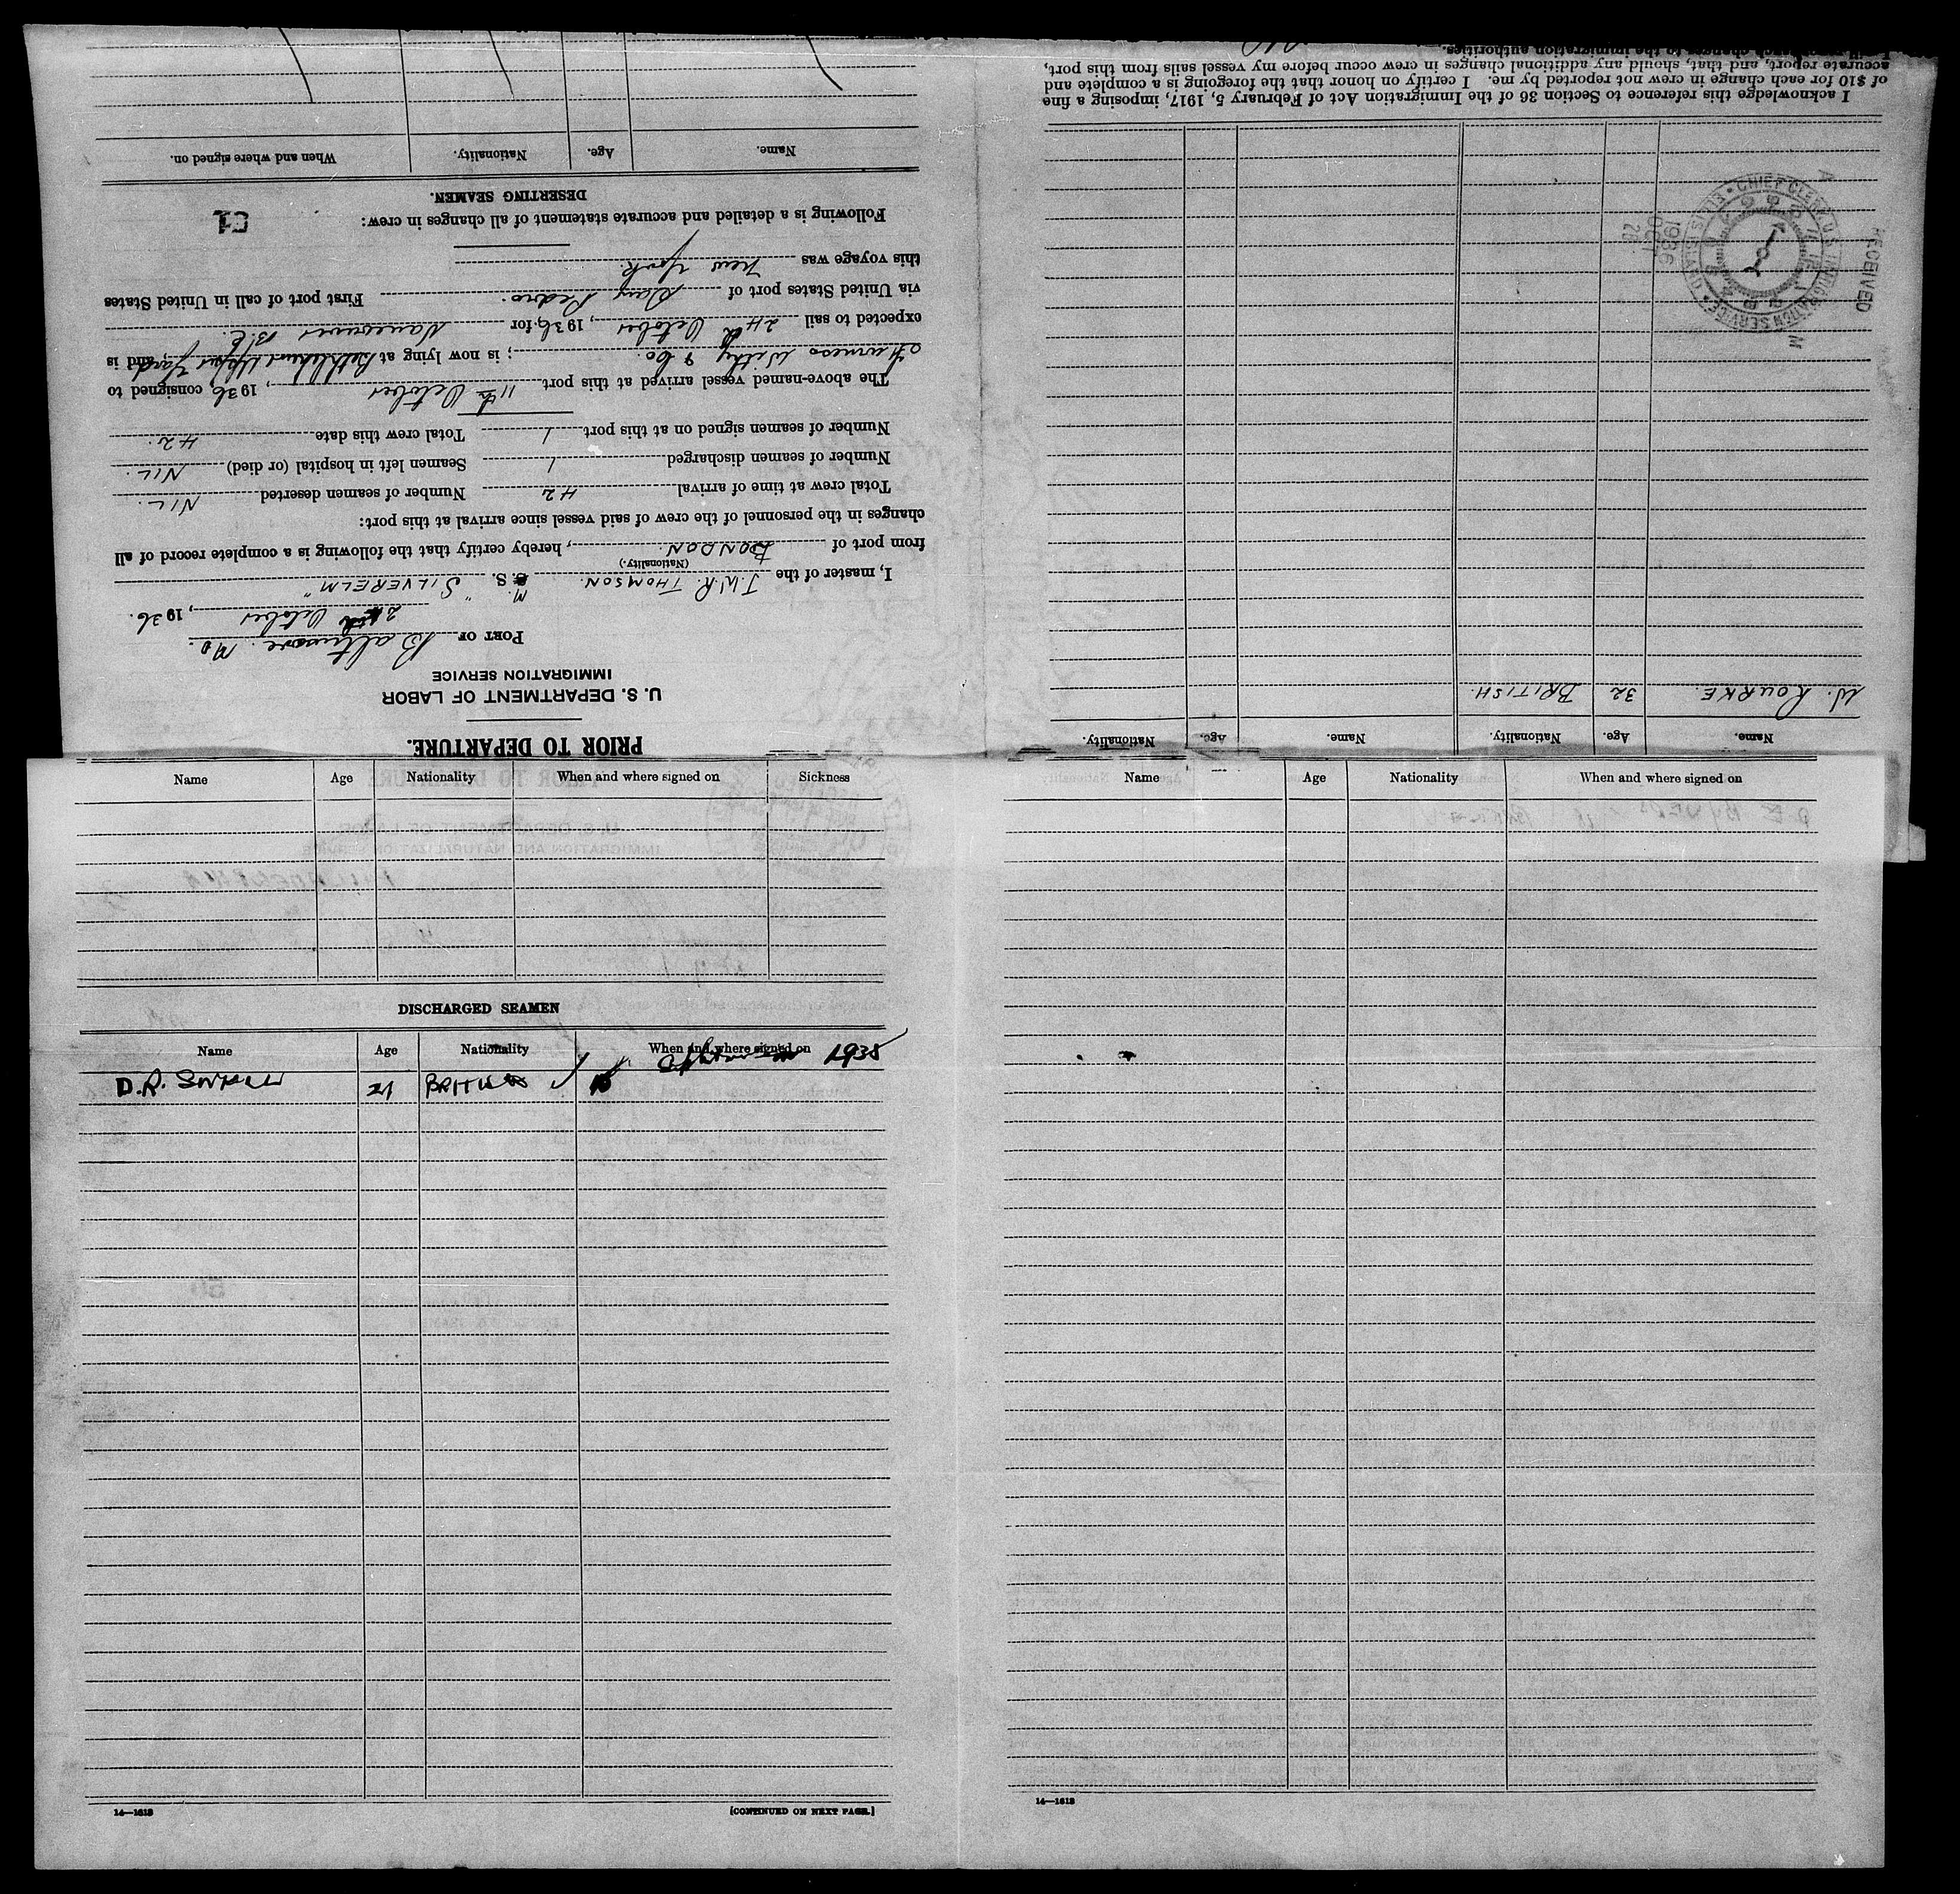 PRIOR TO DEPARTURE.
U. S. DEPARTMENT OF LABOR
IMMIGRATION SERVICE
PORT OF Baltimore. MD.
October, 1936.
I, master of the J.W.R. THOMSON. M. S. "SILVERELM"
(Nationality.)
from port of LONDON., hereby certify that the following is a complete record of all
changes in the personnel of the crew of said vessel since arrival at this port:
Total crew at time of arrival 42 Number of seamen deserted NIL.
Number of seamen discharged 1 Seamen left in hospital (or died) NIL.
Number of seamen signed on at this port 1 Total crew this date 42.
The above-named vessel arrived at this port 11th October, 1936, consigned to
Furness Withy & Co.; is now lying at Bethlehem Upper Yard, and is
expected to sail 24th October, 1936, for Vancouver B.C.
via United States port of San Pedro. First port of call in United States
this voyage was New York.
Following is a detailed and accurate statement of all changes in crew:
DESERTING SEAMEN.
Name. Age. Nationality. When and where signed on.
Name. Age. Nationality. Name. Age. Nationality.
W. ROURKE. 32 BRITISH.
RECEIVED
1936 OCT 26
CHIEF CLERK U.S. IMMIGRATION SERVICE ELLIS ISLAND
I acknowledge this reference to Section 36 of the Immigration Act of February 5, 1917, imposing a fine
of $10 for each change in crew not reported by me. I certify on honor that the foregoing is a complete and
accurate report, and that, should any additional changes in crew occur before my vessel sails from this port,
changes to the immigration authorities.
Name Age Nationality When and where signed on Sickness
DISCHARGED SEAMEN
Name Age Nationality When and where signed on
1935
D.R. 21 BRITISH
14—1618 [CONTINUED ON NEXT PAGE.]
Name Age Nationality When and where signed on
14—1618